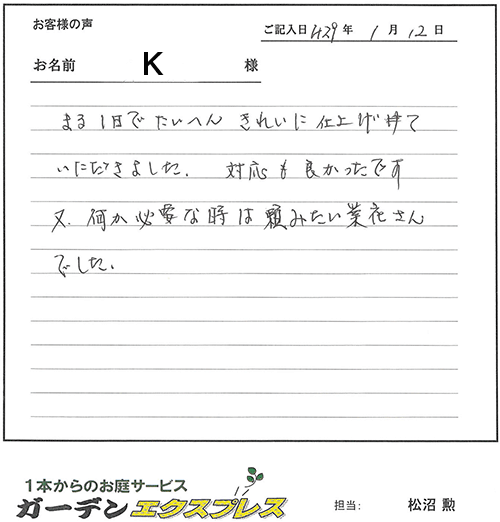 お客様の声
ご記入日 H29年 1月 12日
お名前 K 様
まる1日でたいへん きれいに 仕上げ
いただきました. 対応も良かったです
又. 何か必要な時は 頼みたい業者さん
でした.
1本からのお庭サービス
ガーデンエクスプレス
担当: 松沼 勲